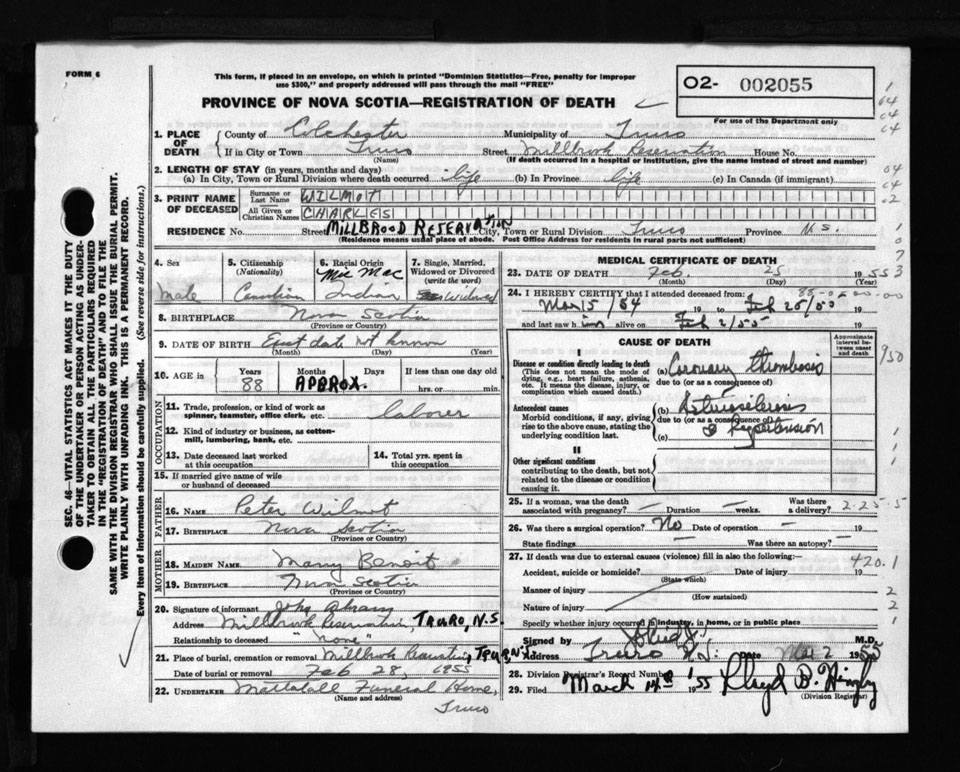 FORM 6
This form, if placed in an envelope, on which is printed "Dominion Statistics—Free, penalty for improper
use $300," and properly addressed will pass through the mail "FREE"
PROVINCE OF NOVA SCOTIA—REGISTRATION OF DEATH
O2- 002055
For use of the Department only
1. PLACE OF DEATH
County of Colchester Municipality of Truro
If in City or Town Truro Street Millbrook Reservation House No.
(Name) (If death occurred in a hospital or institution, give the name instead of street and number)
2. LENGTH OF STAY (in years, months and days)
(a) In City, Town or Rural Division where death occurred life (b) In Province life (c) In Canada (if immigrant)
3. PRINT NAME OF DECEASED
Surname or Last Name WILMOT
All Given or Christian Names CHARLES
RESIDENCE No. Street MILLBROOD RESERVATION City, Town or Rural Division Truro Province N.S.
(Residence means usual place of abode. Post Office Address for residents in rural parts not sufficient)
4. Sex
Male
5. Citizenship (Nationality)
Canadian
6. Racial Origin
Mic Mac Indian
7. Single, Married, Widowed or Divorced (write the word)
Widowed
8. BIRTHPLACE Nova Scotia
(Province or Country)
9. DATE OF BIRTH Exact date not known
(Month) (Day) (Year)
10. AGE in Years 88 Months Days APPROX. If less than one day old
hrs. or min.
OCCUPATION
11. Trade, profession, or kind of work as spinner, teamster, office clerk, etc. laborer
12. Kind of industry or business, as cotton-mill, lumbering, bank, etc.
13. Date deceased last worked at this occupation
14. Total yrs. spent in this occupation
15. If married give name of wife or husband of deceased
FATHER
16. Name Peter Wilmot
17. Birthplace Nova Scotia
(Province or Country)
MOTHER
18. Maiden Name Mary Benoit
19. Birthplace Nova Scotia
(Province or Country)
20. Signature of informant John Abram
Address Millbrook Reservation, TRURO, N.S.
Relationship to deceased "none"
21. Place of burial, cremation or removal Millbrook Reservation, TRURO, N.S
Date of burial or removal Feb 28, 1955
22. Undertaker Mattatall Funeral Home,
(Name and address)
Truro
MEDICAL CERTIFICATE OF DEATH
23. DATE OF DEATH Feb. 25 1955
(Month) (Day)
24. I HEREBY CERTIFY that I attended deceased from:
Mar 5/54 19 to Feb 25/55 19
and last saw him alive on Feb 2/55 19
CAUSE OF DEATH
Approximate interval between onset and death
I
Disease or condition directly leading to death
(This does not mean the mode of dying, e.g., heart failure, asthenia, etc. It means the disease, injury, or complication which caused death.)
(a) Coronary thrombosis
due to (or as a consequence of)
Antecedent causes
Morbid conditions, if any, giving rise to the above cause, stating the underlying condition last.
(b)
due to (or as a consequence of)
Hypertension
(c)
II
Other significant conditions
contributing to the death, but not related to the disease or condition causing it.
25. If a woman, was the death associated with pregnancy? Duration weeks. Was there a delivery?
26. Was there a surgical operation? No Date of operation 19
State findings Was there an autopsy?
27. If death was due to external causes (violence) fill in also the following:
Accident, suicide or homicide? Date of injury 19
(State which)
Manner of injury
(How sustained)
Nature of injury
Specify whether injury occurred in industry, in home, or in public place
Signed by M.D.
Address Truro N.S. Date Mar 2 1955
28. Division Registrar's Record Number
29. Filed March 1955 Lloyd B.
(Division Registrar)
1
64
64
64
04
64
02
1
0
7
3
950
1
1
1
2-25-5
420.1
2
2
1
SEC. 46—VITAL STATISTICS ACT MAKES IT THE DUTY
OF THE UNDERTAKER OR PERSON ACTING AS UNDER-
TAKER TO OBTAIN ALL THE PARTICULARS REQUIRED
IN THE "REGISTRATION OF DEATH" AND TO FILE THE
SAME WITH THE DIVISION REGISTRAR WHO SHALL ISSUE THE BURIAL PERMIT.
WRITE PLAINLY WITH UNFADING INK. THIS IS A PERMANENT RECORD.
Every item of information should be carefully supplied. (See reverse side for instructions.)